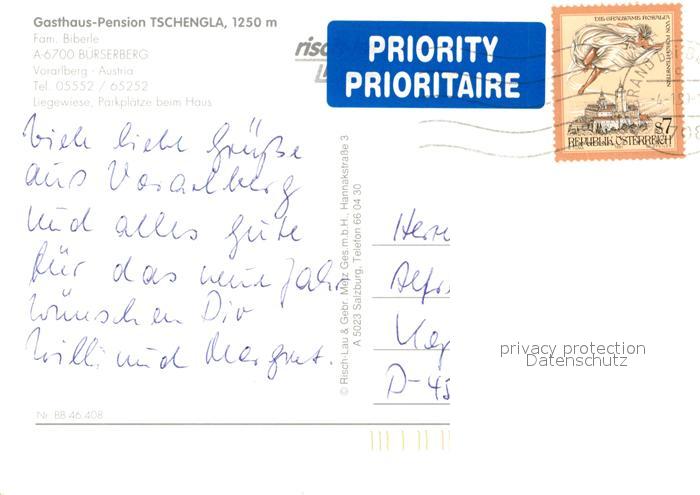 Gasthaus-Pension TSCHENGLA, 1250 m
Fam. Biberle
A-6700 BÜRSERBERG
Vorarlberg · Austria
Tel. 05552 / 65252
Liegewiese, Parkplätze beim Haus
PRIORITY
PRIORITAIRE
DIE GRAUSAME ROSALIA
VON FORCHTENSTEIN
S7
REPUBLIK ÖSTERREICH
Viele liebe Grüße
aus Vorarlberg
und alles gute
für das neue Jahr
wünschen Dir
Willi und Margret.
© Risch-Lau & Gebr. Metz Ges.m.b.H., Hannakstraße 3
A 5023 Salzburg, Telefon 66 04 30
Herrn
Alfr
Kap
D-45
privacy protection
Datenschutz
Nr. BB 46.408